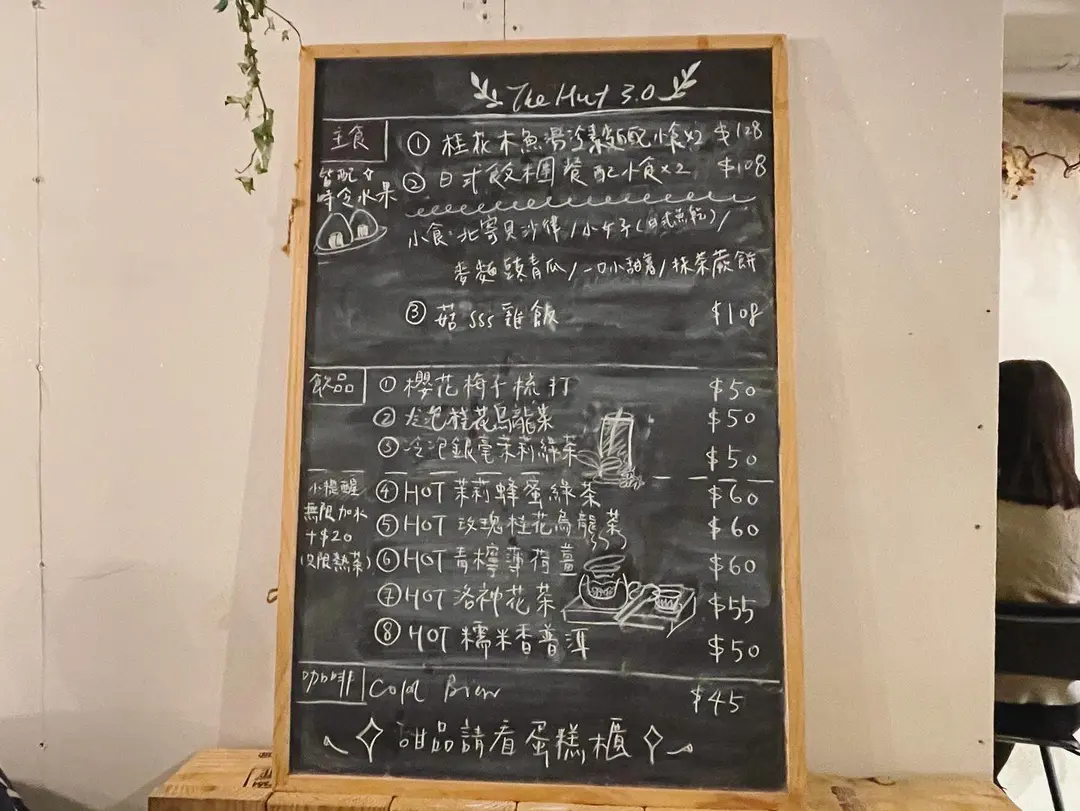 The Hut 3.0
主食
① 桂花木魚湯冷素麵配小食x2 $128
② 日式飯糰餐配小食x2 $108
皆配
時令水果
小食: 北寄貝沙律/小女子(日式魚乾)/
麥麵豉青瓜/一口小甜薯/抹茶蕨餅
③ 菇sss雞飯 $108
飲品
① 櫻花梅子梳打 $50
② 冷泡桂花烏龍茶 $50
③ 冷泡銀毫茉莉綠茶 $50
小提醒
無限加水
+$20
(只限熱茶)
④ HOT 茉莉蜂蜜綠茶 $60
⑤ HOT 玫瑰桂花烏龍茶 $60
⑥ HOT 青檸薄荷薑 $60
⑦ HOT 洛神花茶 $55
⑧ HOT 糯米香普洱 $50
咖啡 Cold Brew $45
甜品請看蛋糕櫃